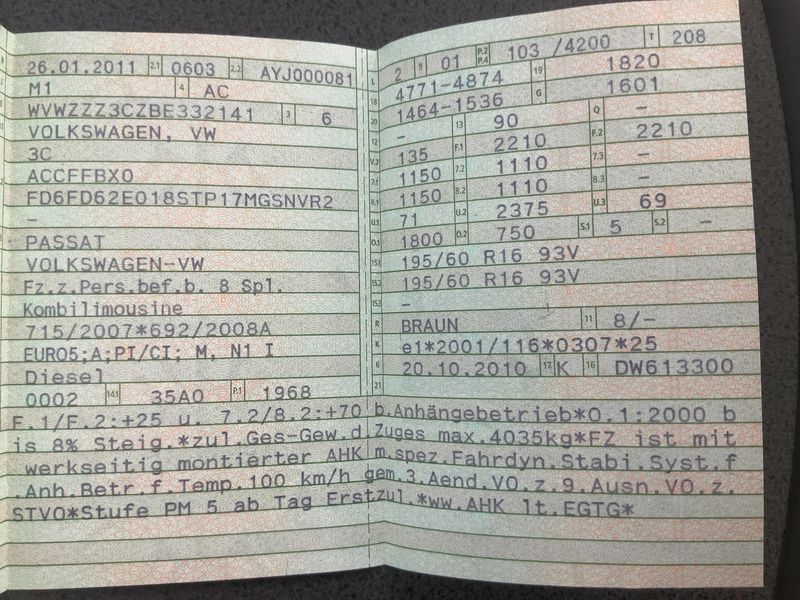 26.01.2011 2.1 0603 2.2 AYJ000081
M1 4 AC
WVWZZZ3CZBE332141 3 6
VOLKSWAGEN, VW
3C
ACCFFBX0
FD6FD62E018STP17MGSNVR2
–
PASSAT
VOLKSWAGEN-VW
Fz.z.Pers.bef.b. 8 Spl.
Kombilimousine
715/2007*692/2008A
EURO5;A;PI/CI; M, N1 I
Diesel
0002 14.1 35A0 P.1 1968
L 2 9 01 P.2 P.4 103 /4200 T 208
18 4771-4874 19 1820
20 1464-1536 G 1601
12 – 13 90 Q –
V.7 135 F.1 2210 F.2 2210
7.1 1150 7.2 1110 7.3 –
8.1 1150 8.2 1110 8.3 –
U.1 71 U.2 2375 U.3 69
O.1 1800 O.2 750 S.1 5 S.2 –
15.1 195/60 R16 93V
15.2 195/60 R16 93V
15.3 –
R BRAUN 11 8/–
K e1*2001/116*0307*25
6 20.10.2010 17 K 16 DW613300
21
F.1/F.2:+25 u. 7.2/8.2:+70 b.Anhängebetrieb*O.1:2000 b
is 8% Steig.*zul.Ges-Gew.d.Zuges max.4035kg*FZ ist mit
werkseitig montierter AHK m.spez.Fahrdyn.Stabi.Syst.f
.Anh.Betr.f.Temp.100 km/h gem.3.Aend.VO.z.9.Ausn.VO.z.
STVO*Stufe PM 5 ab Tag Erstzul.*ww.AHK lt.EGTG*